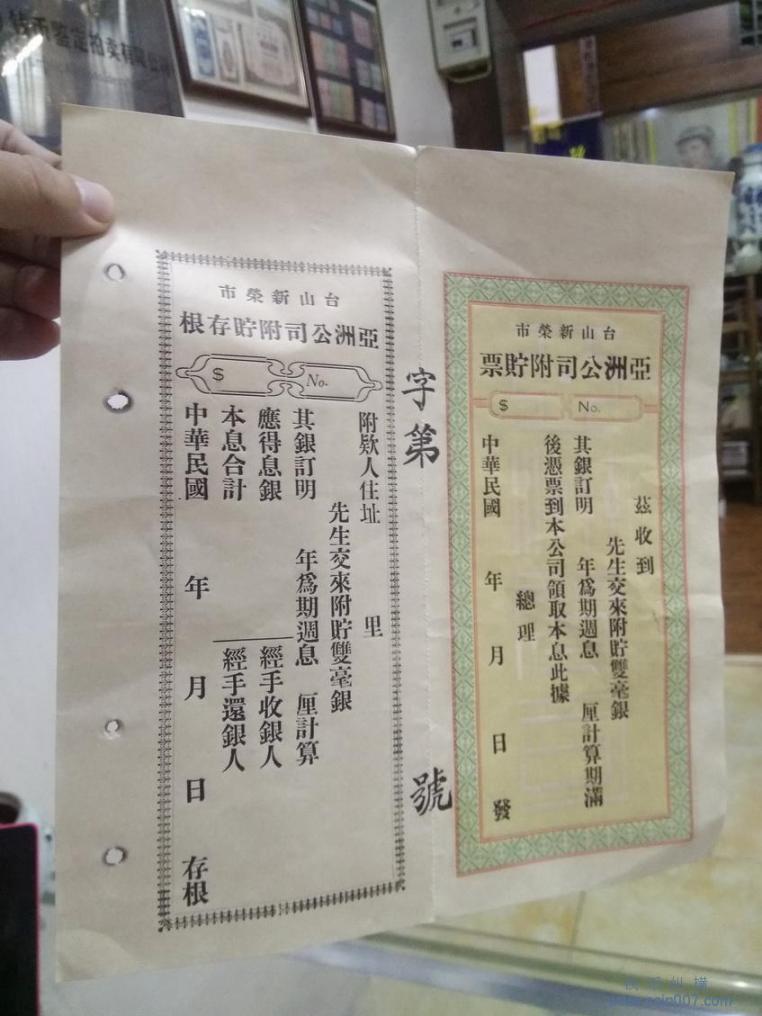 币鉴定拍卖有限公司
台山新榮市
亞洲公司附貯票
$ No.
茲收到
先生交來附貯雙毫銀
其銀訂明 年爲期週息 厘計算期滿
後憑票到本公司領取本息此據
總理
中華民國 年 月 日 發
字第 號
台山新榮市
亞洲公司附貯存根
$ No.
附欵人住址 里
先生交來附貯雙毫銀
其銀訂明 年爲期週息 厘計算
應得息銀 經手收銀人
本息合計 經手還銀人
中華民國 年 月 日 存根